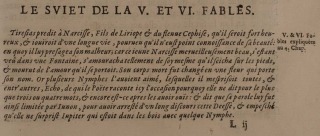 LE SVIET DE LA V. ET VI. FABLES.
Tiresias predit à Narcisse, Fils de Liriope & du fleuue Cephise, qu'il seroit fort heu-
reux, & iouiroit d'vne longue vie, pourueu qu'il n'eust point connoissance de sa beauté:
en quoy il luy presagea son malheur; car ce ieune Narcisse merueilleusement beau, s'estant
veu dans vne Fontaine, s'amouracha tellement de soy mesme qu'il seiche sur les pieds,
& mourut de l'amour qu'il se portoit. Son corps mort fut changé en vne fleur qui porte
son nom. Or plusieurs Nymphes l'auoient aimé, lesquelles il mesprisoit toutes, &
entr'autres, Echo, de qui le Poëte raconte icy l'occasion pourquoy elle ne dit pour le plus
que trois ou quatre mots, & encore est-ce apres les auoir ouis: & dit que sa parole luy fut
ainsi limitée par Iunon, pour auoir arresté d'vn long discours cette Deesse, & empesché
qu'elle ne surprist Iupiter qui estoit dans les bois auec quelque Nymphe.
V. & VI. Fa-
bles expliquées
au 4. Chap.
L ij